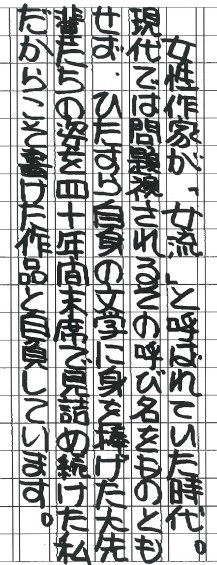 女性作家が、「女流」と呼ばれていた時代。
現代では問題視されるその呼び名をものとも
せず、ひたすら自身の文学に身を捧げた大先
輩たちの姿を四十年間末席で見詰め続けた私
だからこそ書けた作品と自負しています。